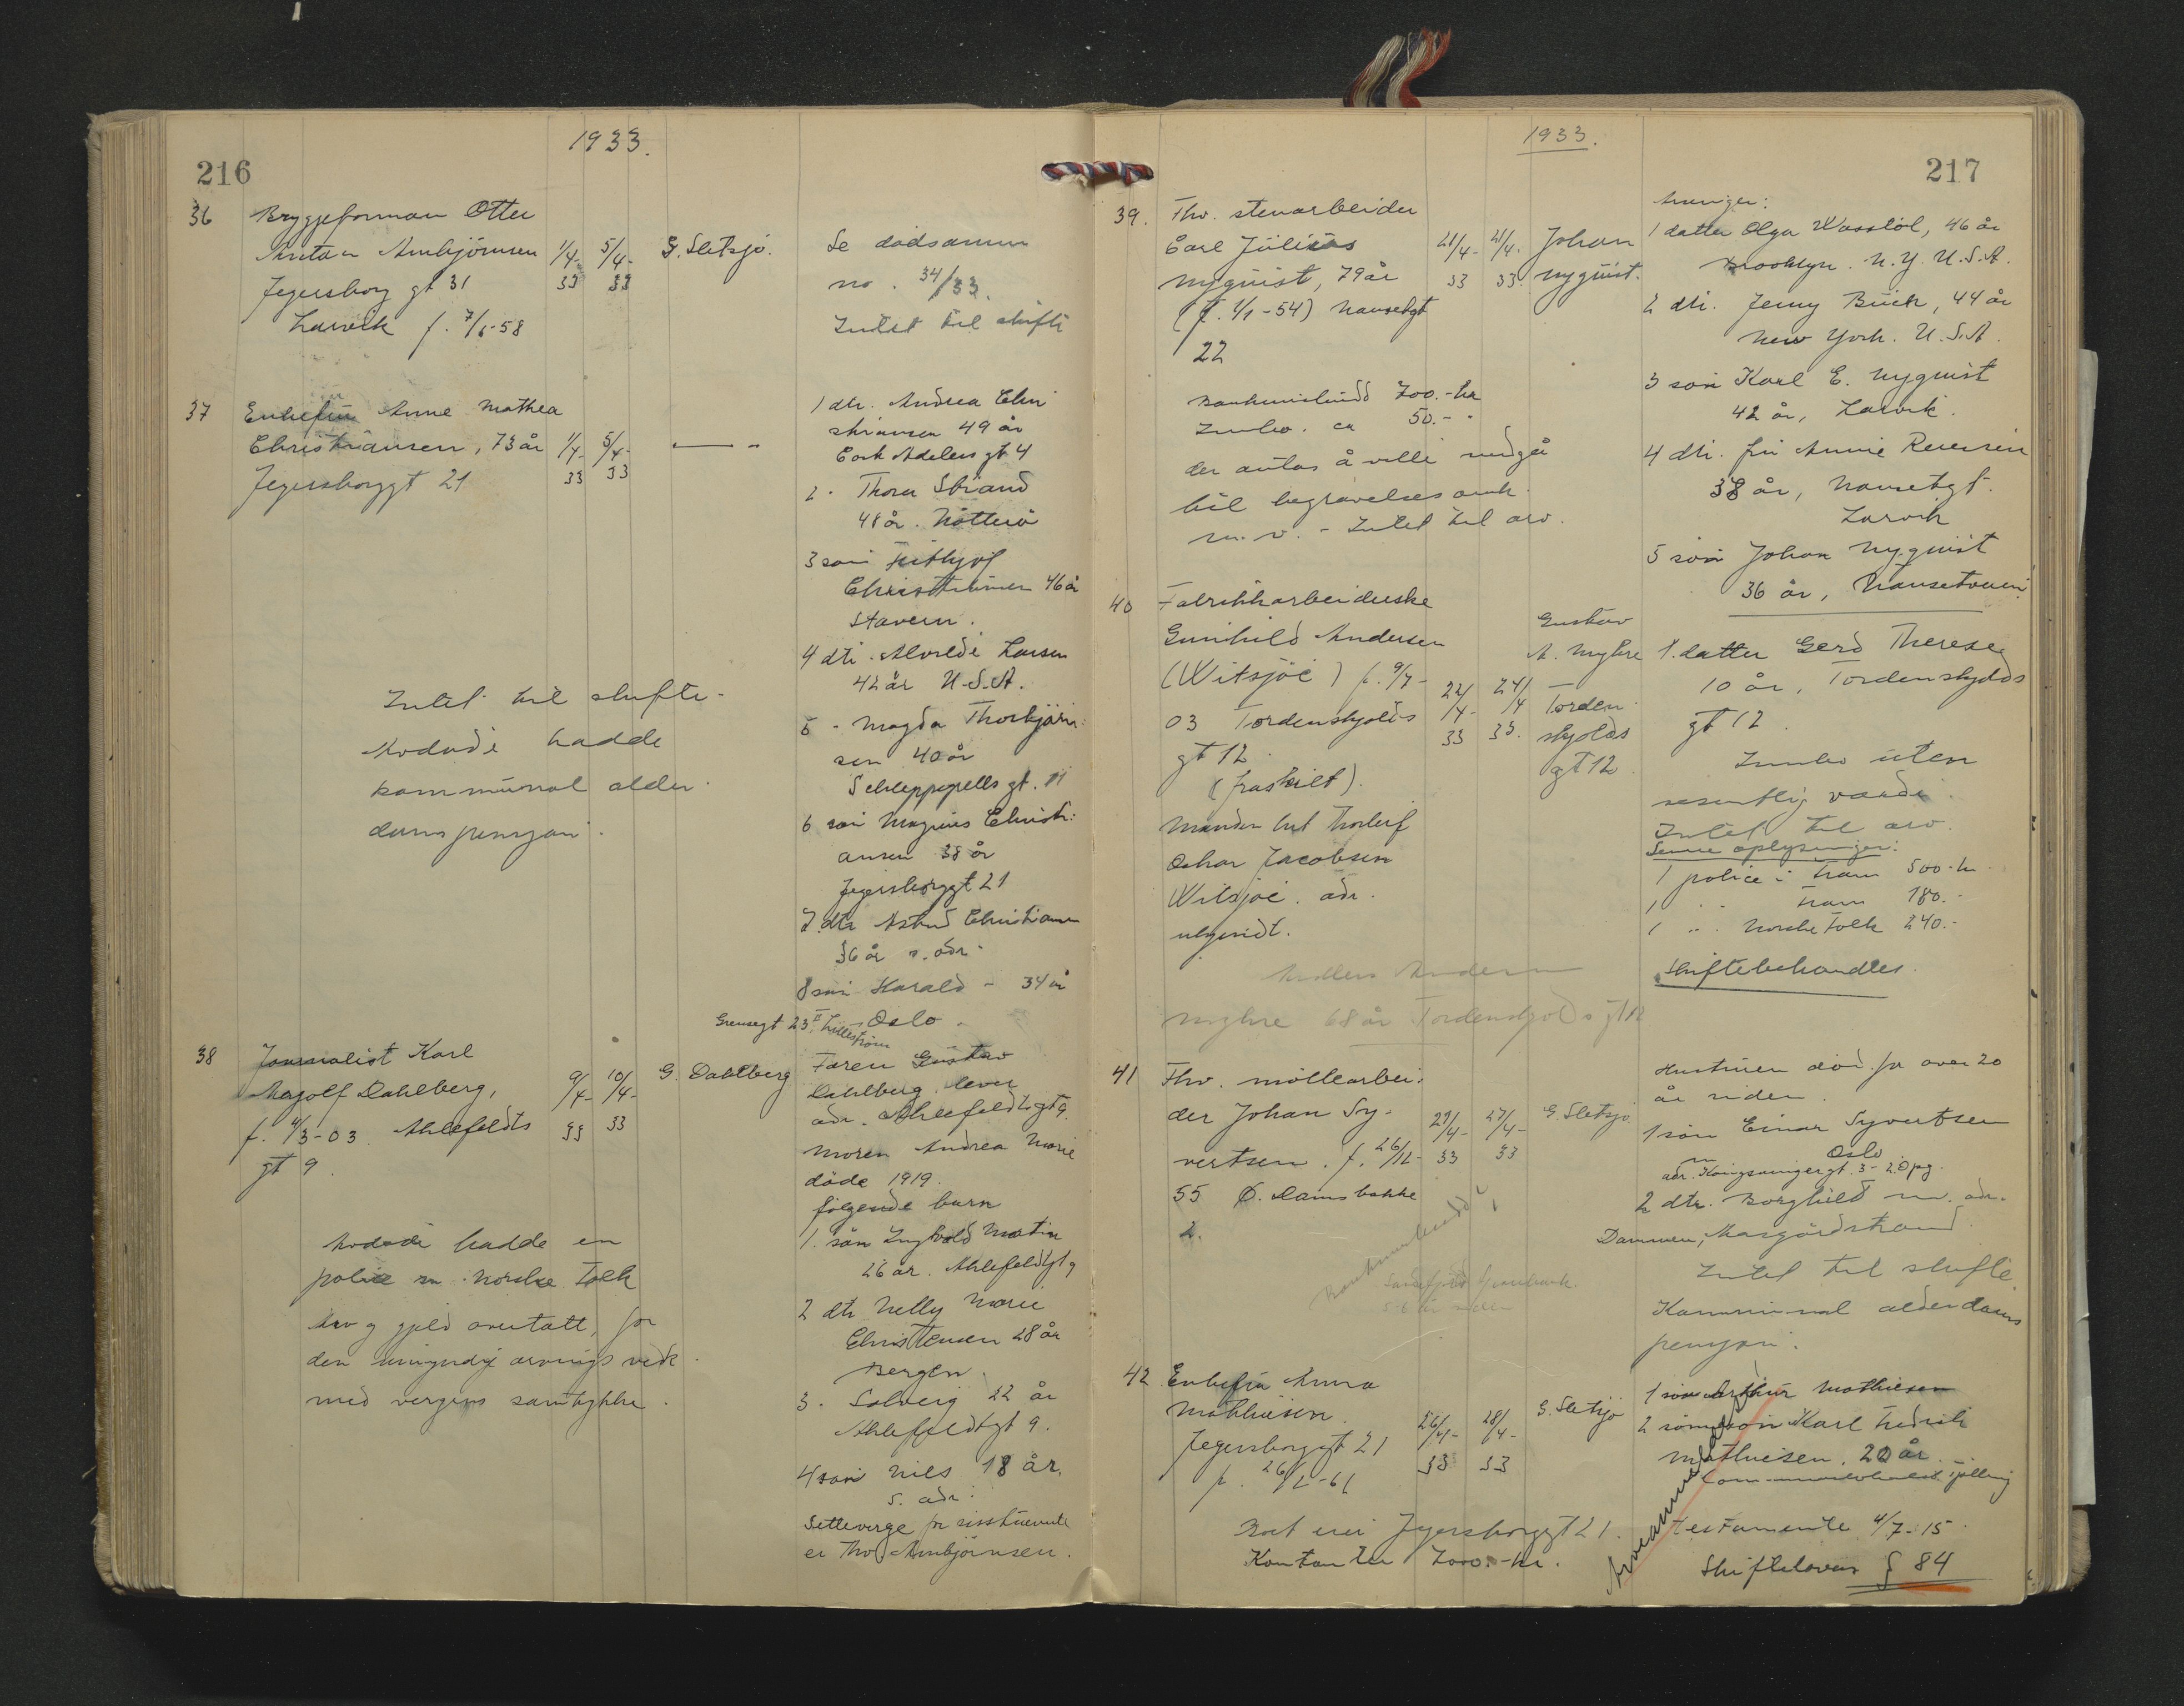 1933.
216
36 Bryggeformann Otter
Anton Arnbjörnsen 1/4- 5/4- G. Sletsjö. Se dödsanm
Jegersborg gt 31 33 33 no. 34/33.
Larvik f. 7/6-58 Intet til skifte
37 Enkefru Anne Mathea
Christiansen, 73 år 1/4- 5/4- — "
Jegersborggt 21 33 33
1 dtr. Andrea Chri
stiansen 49 år
Cort Adelers gt 4
2 - Thora Strand
48 år. Nötterö
3 sön Frithjof
Christiansen 46 år
Stavern.
4 dtr. Alvilde Larsen
42 år U.S.A.
5 - Magda Thorbjörn:
sen 40 år
Schleppegrells gt. 11
6 sön Magnus Christi:
ansen 38 år
Jegersborggt 21
7 dtr Astrid Christiansen
36 år s. adr.
8 sön Harald - 34 år
Oslo.
Grensegt 23 II Lilleström
Intet til skifte.
Avdöde hadde
kommunal alder
doms pensjon.
38 Journalist Karl
Magolf Dahlberg, 9/4- 10/4- G. Dahlberg
f. 4/3-03. Ahlefeldts 33 33
gt 9.
Faren Gustav
Dahlberg lever
adr. Ahlefeldtsgt 9.
Moren Andrea Marie
döde 1919.
følgende barn
1. sön Ingvald Martin
26 år. Ahlefeldtgt 9
2 dtr Nelly Marie
Christensen 28 år
Bergen.
3. Solveig 22 år
Ahlefeldtgt 9.
4 sön Nils 18 år.
s. adr.
Setteverge for sistnevnte
er Thv Arnbjörnsen.
Avdöde hadde en
police i Norske Folk
Arv og gjeld overtatt, for
den umyndige arvings vedk.
med vergens samtykke.
1933.
217
39. Fhv. stenarbeider
Carl Julius 21/4- 21/4. Johan
Nyquist, 79 år 33 33. Nyquist.
(f. 1/1-54) Nansetgt
22
Bankinnskudd 700.-kr
Innbo. ca 50.- "
der antas å ville medgå
til begravelses omk.
m.v. - Intet til arv.
Arvinger:
1 datter Olga Wasstöl, 46 år
Brooklyn. N.Y. U.S.A.
2 dtr. Jenny Buck, 44 år
New York. U.S.A.
3 sön Karl E. Nyquist
42 år, Larvik.
4 dtr. fru Annie
38 år, Nansetgt.
Larvik
5 sön Johan Nyquist
36 år, Nansetveien
40 Fabrikkarbeiderske
Gunhild Andersen
(Witsjöe) f. 9/7- 22/4- 24/4
03 Tordenskjolds 33 33.
gt 12.
(fraskilt).
Manden het Thorleif
Oskar Jacobsen
Witsjöe. adr.
ubekjendt.
Gustav
A. Myhre
Torden
skjolds
gt 12
1. datter Gerd Therese
10 år, Tordenskjolds
gt 12.
Innbo uten
vesentlig værdi.
Intet til arv.
Senere oplysninger:
1 police i Fram 500-kr.
1 " " Fram 180.-
1 " " Norske Folk 240.-
Skiftebehandles.
Myhre 68 år Tordenskjolds gt 12
41 Fhv. möllearbei:
der Johan Sy- 27/4- 27/4- G Sletsjö
vertsen. f. 26/12- 33 33
55 Ö. Damsbakke
2.
Bankinnskudd i
Sandefjord
Hustruen död for over 20
år siden.
1 sön Einar Syvertsen
Oslo
adr. Kongsvingergt. 3- 2. opg.
2 dtr. Borghild
Dammen, Aasgårdstrand.
Intet til skifte
Kommunal alderdoms
pensjon.
42 Enkefru Anna
Mathiesen. 26/4- 28/4- G. Sletsjö
Jegersborggt 21 33 33
f. 26/2-61
1 sön Arthur Mathiesen
2 sönnesön Karl Fredrik
Mathiesen, 20 år.
Testamente 4/7-15.
Skifteloven § 84
Boet eier Jegersborggt 21.
Kontanter 2000.-kr.